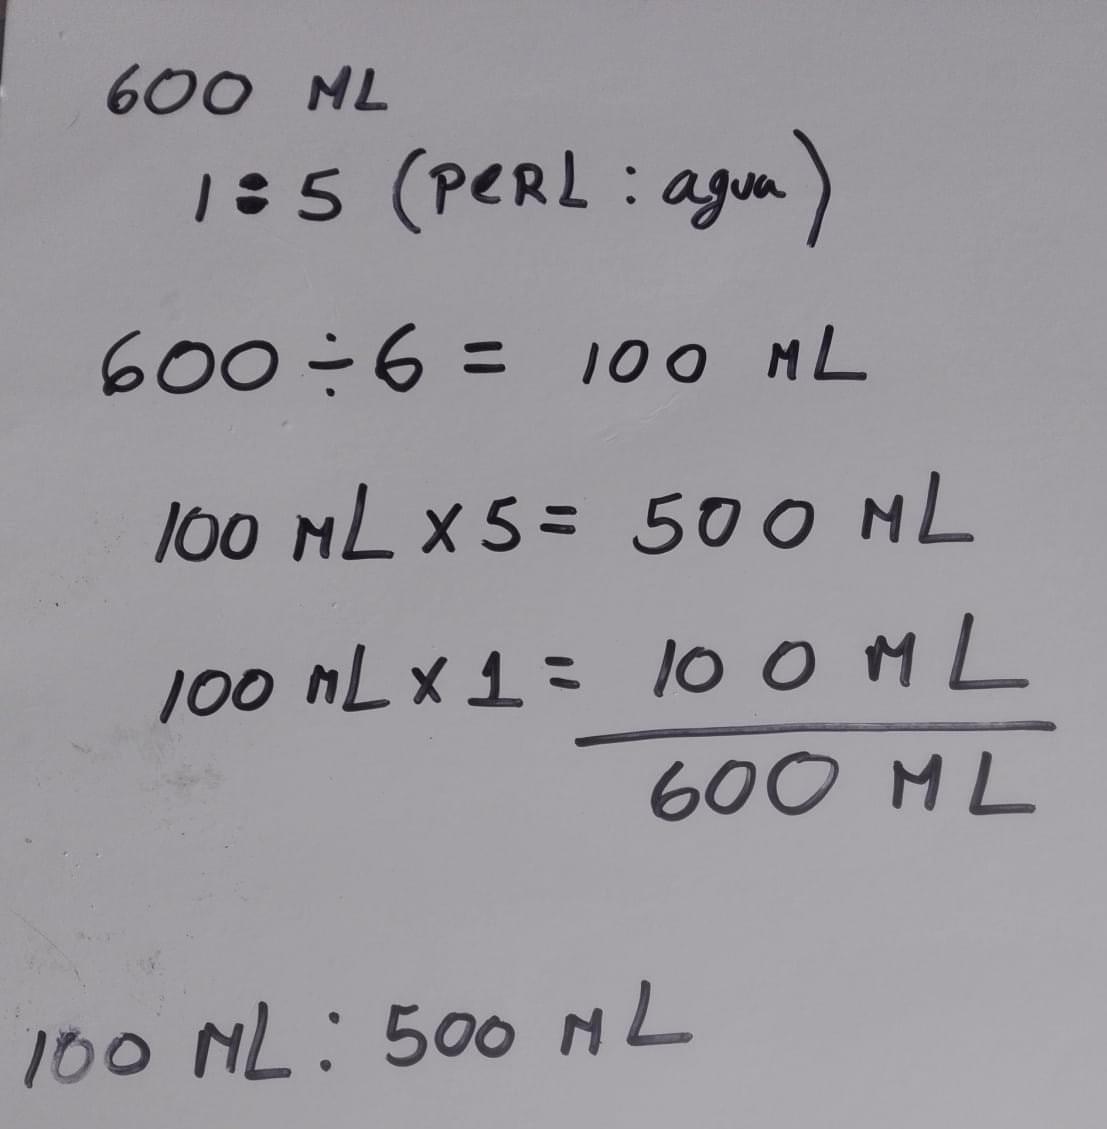 600 ML
1:5 (PERL : agua)
600 ÷ 6 = 100 ML
100 ML x 5 = 500 ML
100 ML x 1 = 100 ML
600 ML
100 ML : 500 ML